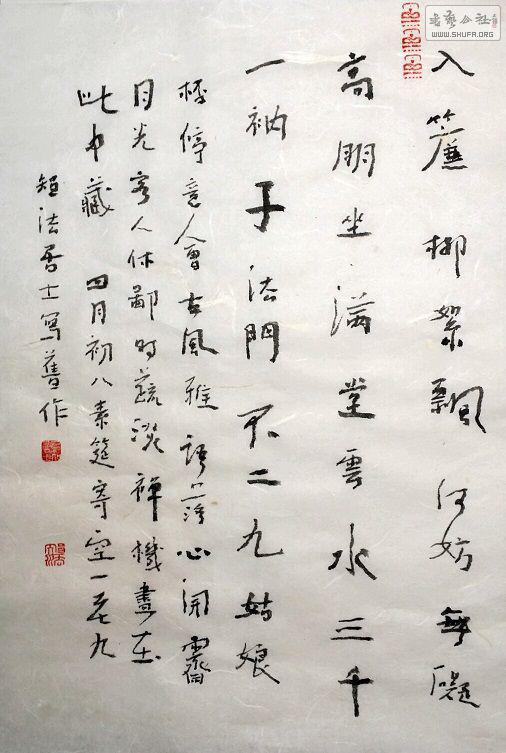 書藝公社
WWW.SHUFA.ORG
入簾柳絮飄何妨無礙
高朋坐滿堂雲水三千
一衲子法門不二九姑娘
停意人會古風雅語心閒齋
月光客人休鄙時蔬淡禪機盡在
此中藏 四月初八素筵寄空一九
法居士寫舊作